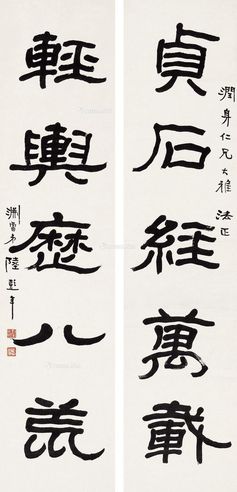 貞石經萬載
潤身仁兄大雅 法正
輕輿歷八荒
淵雷弟陸彭年